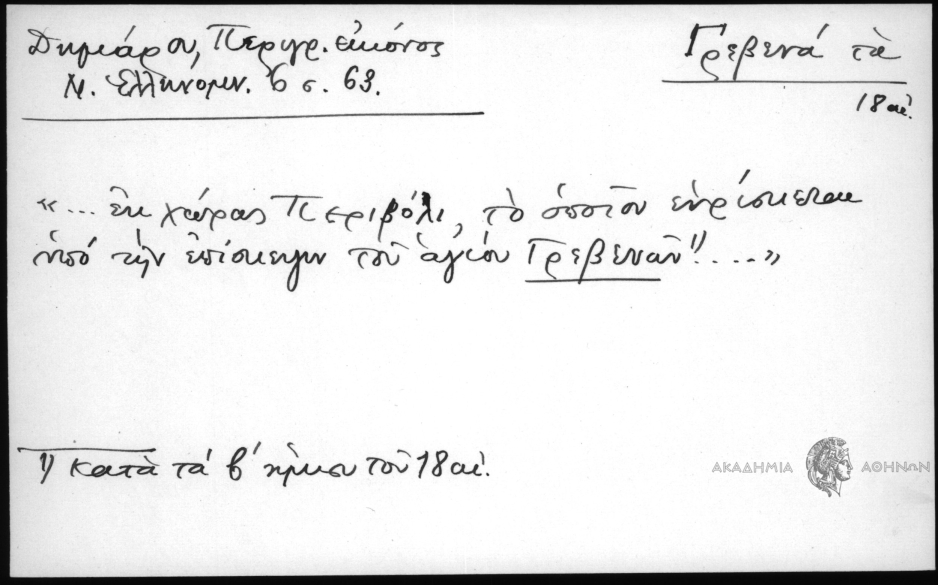 Δημιάρου, Περιγρ. εἰκόνος
Ν. Ἑλληνομν. 6 σ. 63.
Γρεβενά τὰ
18 αἰ.
«... ἐκ χώρας Περιβόλι, τὸ ὁποῖον εὑρίσκεται
ὑπό τὴν ἐπίσκεψιν τοῦ ἁγίου Γρεβενῶν¹⁾....»
1) Κατὰ τά β' ἥμισυ τοῦ 18 αἰ.
ΑΚΑΔΗΜΙΑ ΑΘΗΝΩΝ